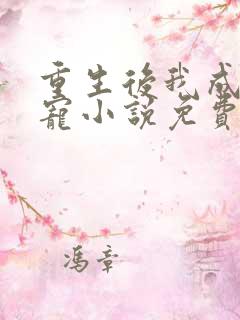 重生後我成
寵小說免費
馮章